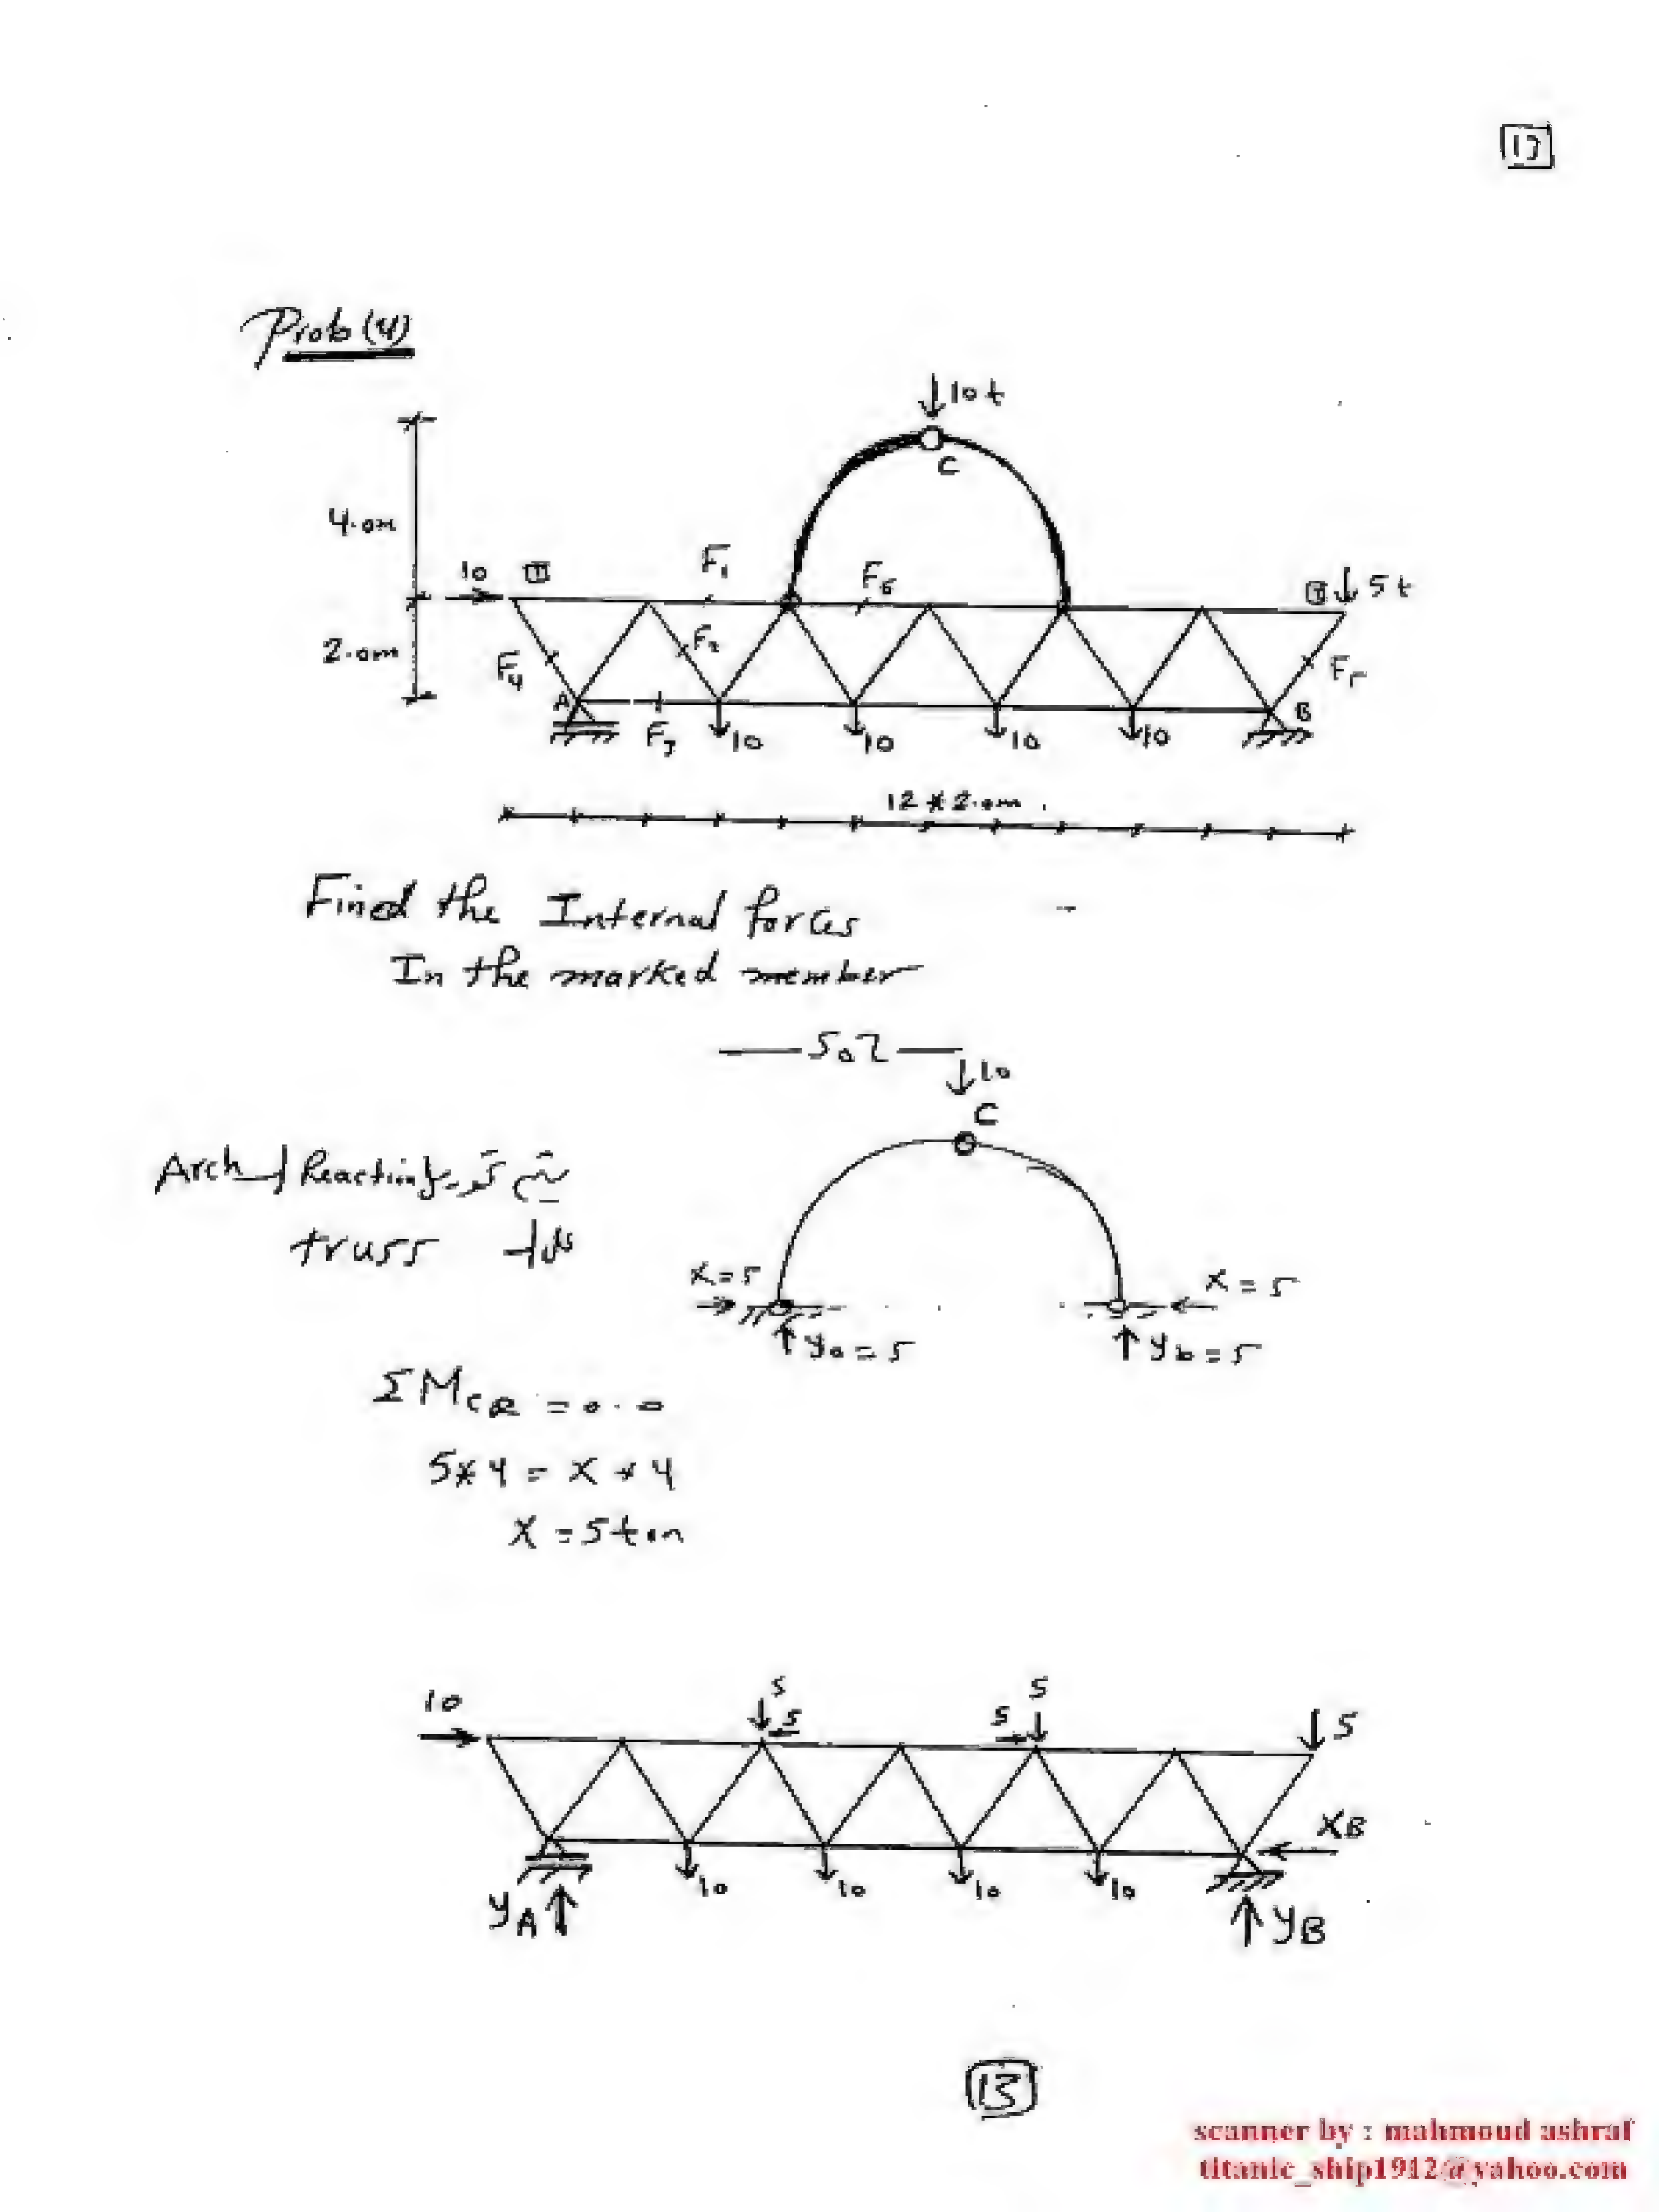 13
Prob (4)
10t
C
4.0m
10
1
F1
F6
7
5t
2.0m
F4
F2
F5
A
B
F3
10
10
10
10
12*2.0m
Fined the Internal forces
In the marked member
Sol
10
C
Arch Reaction
truss
X=5
X=5
ya=5
yb=5
ΣMCR = 0.0
5*4 = X*4
X = 5ton
10
5
5
5
5
5
XB
10
10
10
10
YA
YB
13
scanner by : mahmoud ashraf
titanic_ship1912@yahoo.com